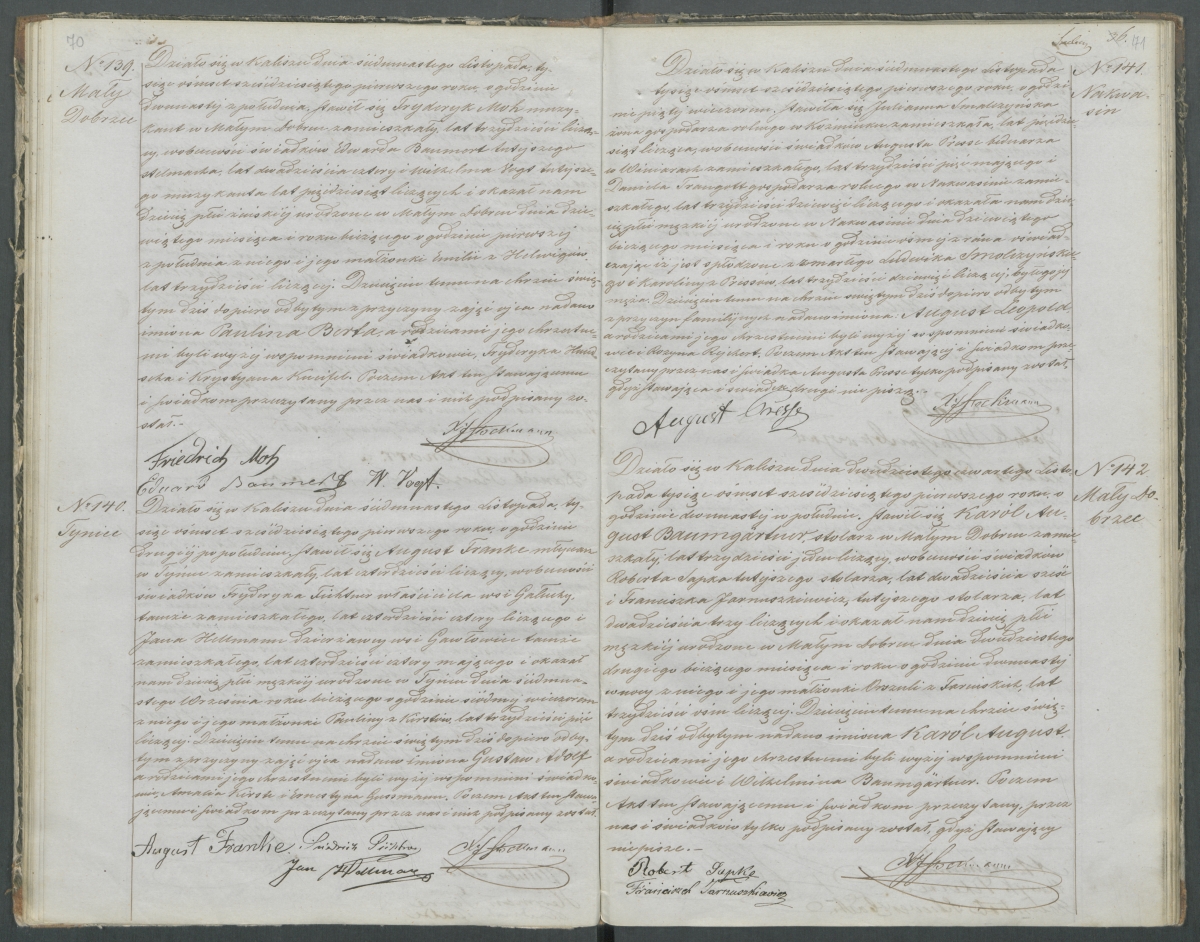 70
No 139.
Mały
Dobrzec
Działo się w Kaliszu dnia siedmnastego Listopada, ty-
siąc ośmset sześćdziesiątego pierwszego roku, o godzinie
dwunastej z południa, stawił się Fryderyk Moh muzy-
kant w Małym Dobrcu zamieszkały, lat trzydzieści liczą-
cy, w obecności świadków Edwarda Baumert tutejszego
stelmacha, lat dwadzieścia cztery i Wilhelma Vogt tutejsze-
go muzykanta lat pięćdziesiąt liczących i okazał nam
dziecię płci żeńskiej urodzone w Małym Dobrcu dnia dzie-
wiątego miesiąca i roku bieżącego o godzinie pierwszej
z południa z niego i jego małżonki Emilii z Helwigów,
lat trzydzieści liczącej. Dziecięciu temu na chrzcie świę-
tym dziś dopiero odbytym z przyczyny zajęć ojca nadano
imiona Paulina Berta, a rodzicami jego chrzestne-
mi byli wyżej wspomnieni świadkowie, Fryderyka
i Krystyana Poczem Akt ten stawającemu
i świadkom przeczytany przez nas i nich podpisany zo-
stał.
Friedrich Moh
Eduard Baumert W. Vogt.
No 140.
Tyniec
Działo się w Kaliszu dnia siedmnastego Listopada, ty-
siąc ośmset sześćdziesiątego pierwszego roku, o godzinie
drugiej po południu, stawił się August Franke młynarz
w Tyńcu zamieszkały, lat czterdzieści liczący, w obecności
świadków Fryderyka właściciela wsi
tamże zamieszkałego, lat czterdzieści cztery liczącego i
Jana Hellmann dzierżawcy wsi Gawłowice tamże
zamieszkałego, lat czterdzieści cztery mającego i okazał
nam dziecię płci męzkiej urodzone w Tyńcu dnia siedmna-
stego Września roku bieżącego o godzinie siódmej wieczorem
z niego i jego małżonki Pauliny z Kirstów, lat trzydzieści pięć
liczącej. Dziecięciu temu na chrzcie świętym dziś dopiero odby-
tym z przyczyny zajęć ojca nadano imiona Gustaw Adolf
a rodzicami jego chrzestnemi byli wyżej wspomnieni świadko-
wie, Amalia Kirste i Ernestyna Gussmann. Poczem Akt ten stawa-
jącemu i świadkom przeczytany przez nas i nich podpisany został.
August Franke.
Jan Hellmann
71
No 141.
Nakwa-
sin
Działo się w Kaliszu dnia siedmnastego Listopada
tysiąc ośmset sześćdziesiątego pierwszego roku, o godzi-
nie piątej wieczorem, stawiła się Julianna Smolczyńska
żona gospodarza rolnego w Koźminku zamieszkała, lat pięćdzie-
siąt licząca, w obecności świadków Augusta Presse bednarza
w Winiarach zamieszkałego, lat trzydzieści pięć mającego i
Daniela Traugott gospodarza rolnego w Nakwasinie zamie-
szkałego, lat trzydzieści dziewięć liczącego i okazała nam dzie-
cię płci męzkiej urodzone w Nakwasinie dnia dziewiątego
bieżącego miesiąca i roku o godzinie ósmej z rana oświad-
czając iż jest spłodzone z zmarłego Ludwika Smolczyńskie-
go i Karoliny z Pressów, lat trzydzieści dziewięć liczącej, byłego jej
męża. Dziecięciu temu na chrzcie świętym dziś dopiero odbytym
z przyczyn familijnych nadano imiona August Leopold,
a rodzicami jego chrzestnemi byli wyżej wspomnieni świadko-
wie i Rozyna Rejchert. Poczem Akt ten stawającej i świadkom prze-
czytany przez nas i świadka Augusta Presse tylko podpisany został,
gdyż stawająca i świadek drugi nie piszą.
August Presse
No 142
Mały Do-
brzec
Działo się w Kaliszu dnia dwudziestego czwartego Listo-
pada tysiąc ośmset sześćdziesiątego pierwszego roku, o
godzinie dwunastej w południe, stawił się Karól Au-
gust Baumgärtner, stolarz w Małym Dobrcu zamie-
szkały, lat trzydzieści jeden liczący, w obecności świadków
Roberta Tapka tutejszego stolarza, lat dwadzieścia sześć
i Franciszka Jarnuszkiewicz, tutejszego stolarza, lat
dwadzieścia trzy liczących i okazał nam dziecię płci
męzkiej urodzone w Małym Dobrcu dnia dwudziestego
drugiego bieżącego miesiąca i roku o godzinie dwunastej
w nocy z niego i jego małżonki Orszuli z Tarnskich, lat
trzydzieści ośm liczącej. Dziecięciu temu na chrzcie świę-
tym dziś odbytym nadano imiona Karól August,
a rodzicami jego chrzestnemi byli wyżej wspomnieni
świadkowie i Wilhelmina Baumgärtner. Poczem
Akt ten stawającemu i świadkom przeczytany, przez
nas i świadków tylko podpisany został, gdyż stawający
nie pisze.
Robert Tapke
Franciszek Jarnuszkiewicz